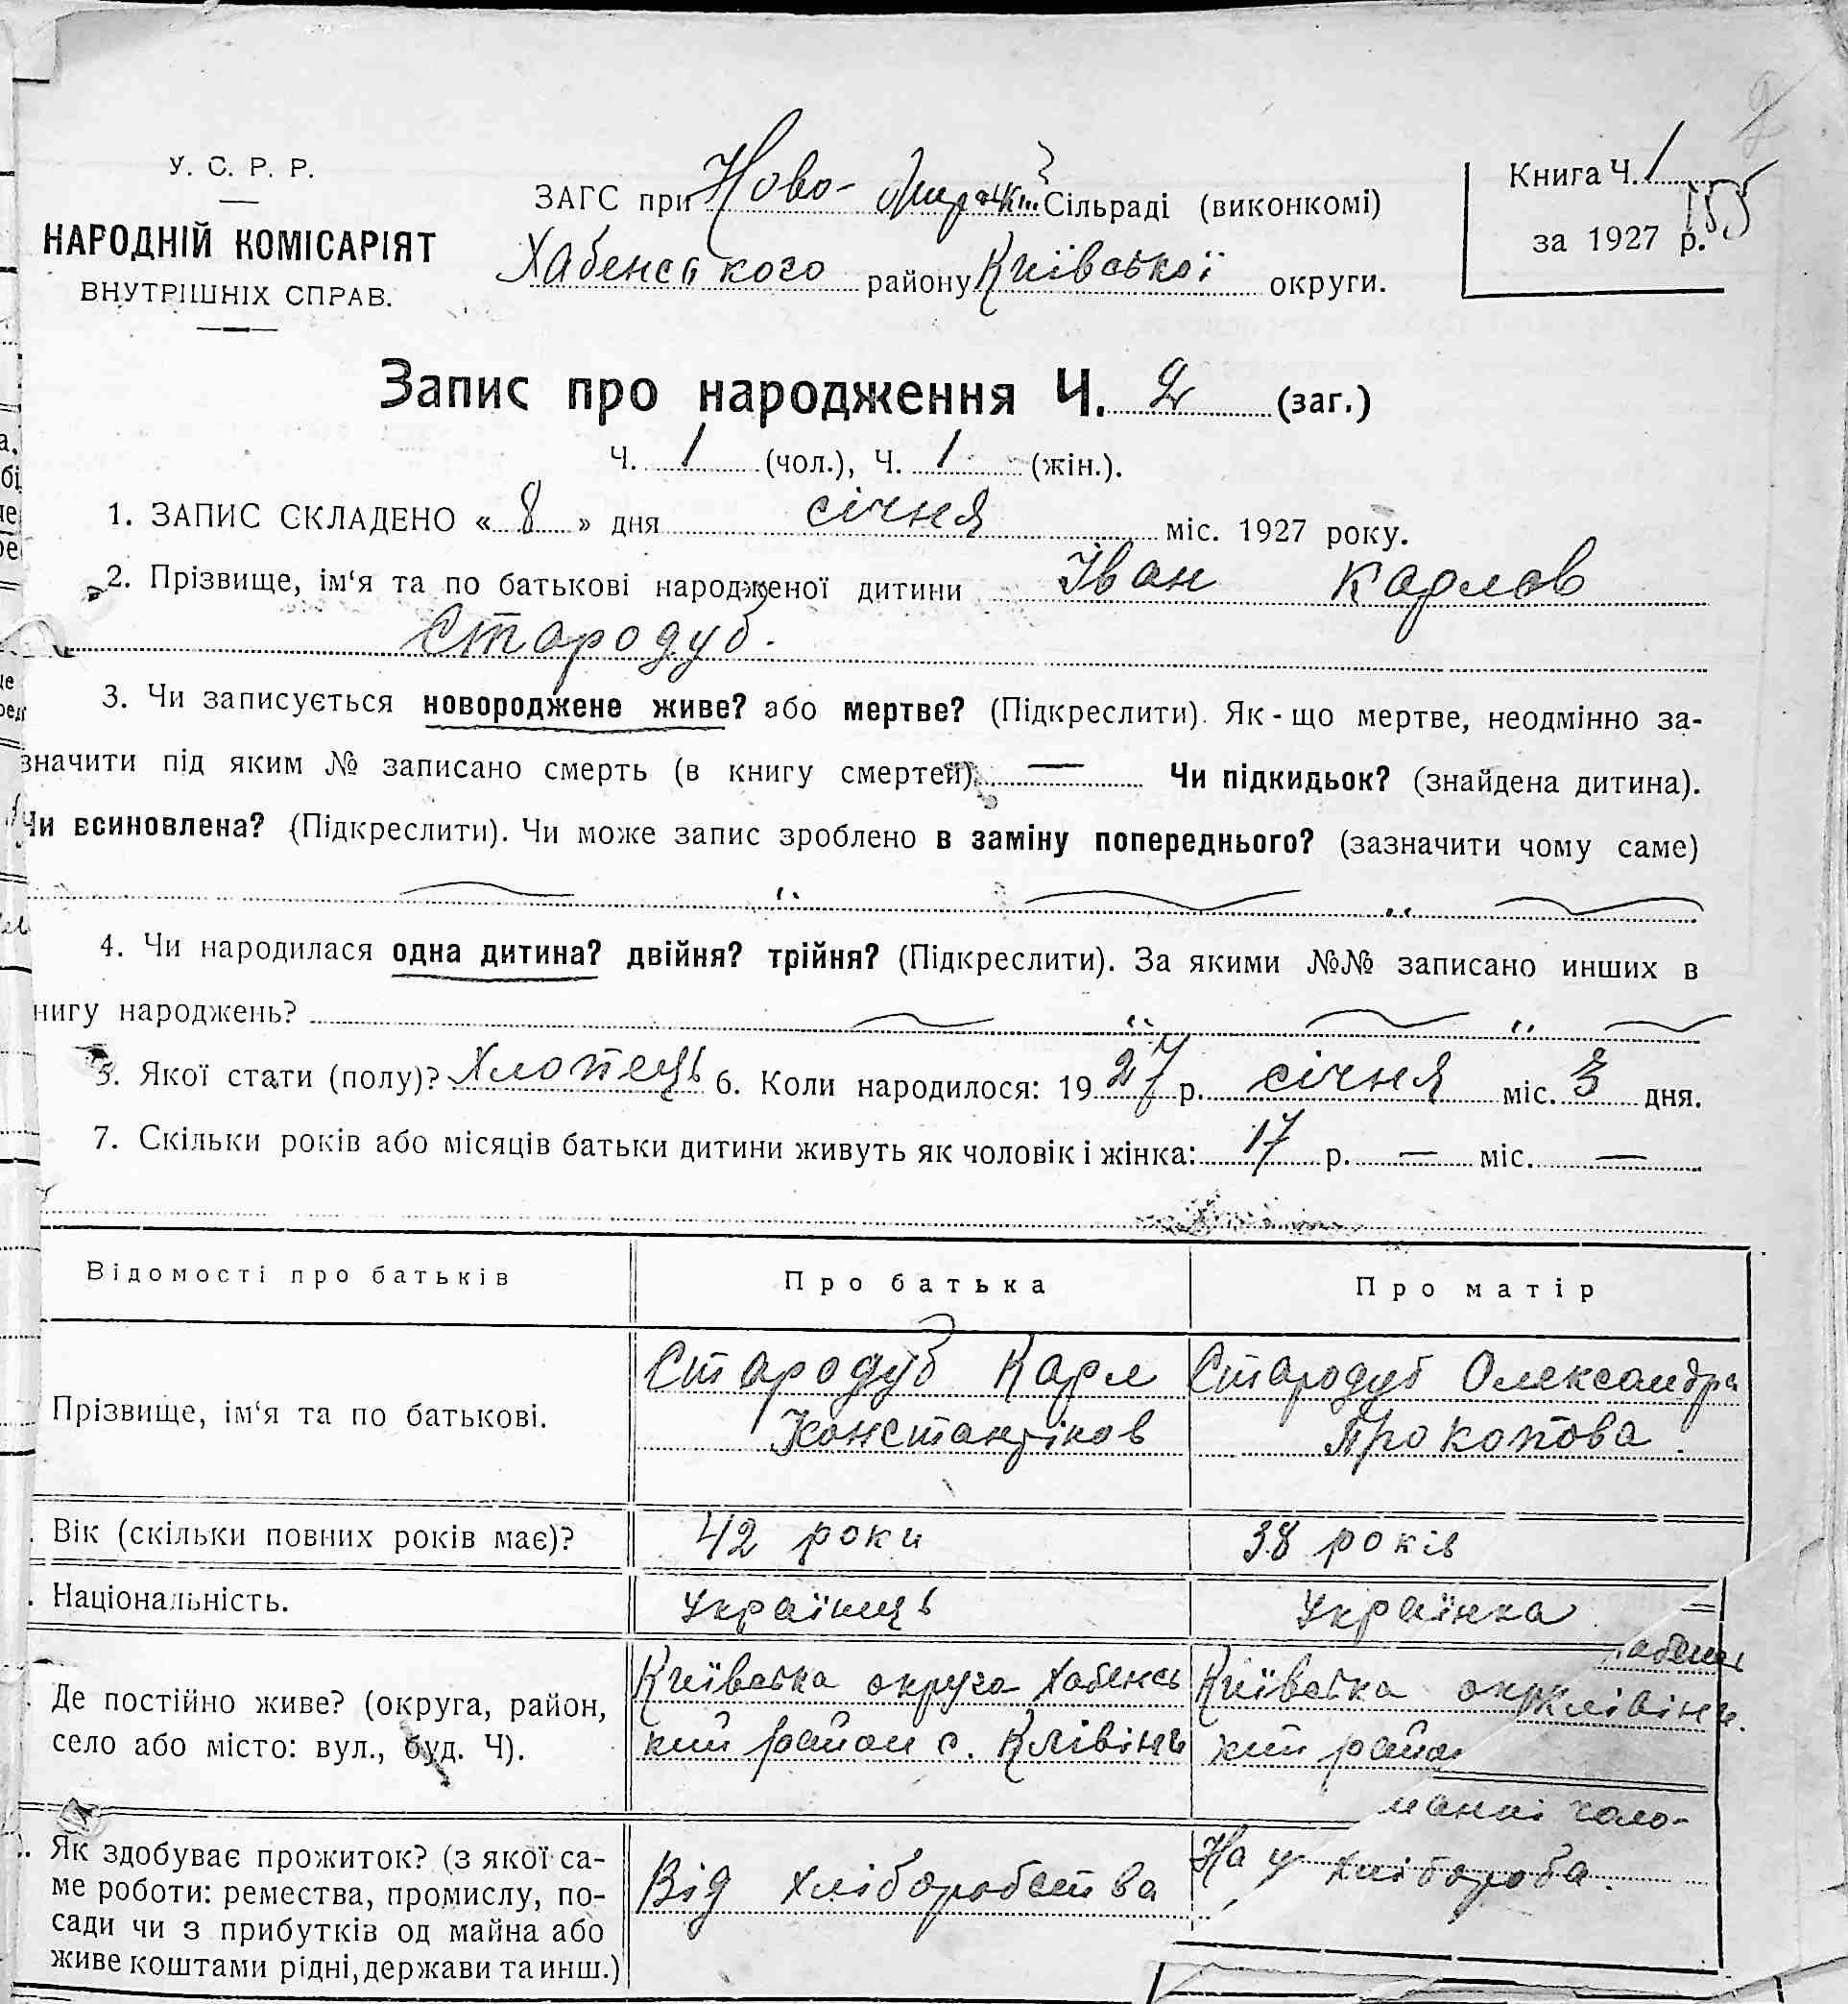 У. С. Р. Р.
НАРОДНІЙ КОМІСАРІЯТ
ВНУТРІШНІХ СПРАВ.
ЗАГС при Ново- Сільраді (виконкомі)
Хабенського району Київської округи.
Книга Ч. 1
за 1927 р.
155
Запис про народження Ч. 2 (заг.)
Ч. 1 (чол.), Ч. 1 (жін.).
1. ЗАПИС СКЛАДЕНО « 8 » дня січня міс. 1927 року.
2. Прізвище, ім‘я та по батькові народженої дитини Іван Карлов
Стародуб.
3. Чи записується новороджене живе? або мертве? (Підкреслити). Як-що мертве, неодмінно за-
значити під яким № записано смерть (в книгу смертей) — Чи підкидьок? (знайдена дитина).
Чи всиновлена? (Підкреслити). Чи може запис зроблено в заміну попереднього? (зазначити чому саме)
4. Чи народилася одна дитина? двійня? трійня? (Підкреслити). За якими №№ записано инших в
нигу народжень?
5. Якої стати (полу)? Хлопець 6. Коли народилося: 1927 р. січня міс. 3 дня.
7. Скільки років або місяців батьки дитини живуть як чоловік і жінка: 17 р. — міс. —
Відомості про батьків Про батька Про матір
Прізвище, ім‘я та по батькові. Стародуб Карл Стародуб Олександра
Константінов Прокопова.
Вік (скільки повних років має)? 42 роки 38 років
Національність. Українець Українка
Де постійно живе? (округа, район,
село або місто: вул., буд. Ч).
Київська округа Хабенсь
кий район с. Клівіни
Київська окр
кий райо
абенсь
Клівіни.
Як здобуває прожиток? (з якої са-
ме роботи: ремества, промислу, по-
сади чи з прибутків од майна або
живе коштами рідні, держави та инш.)
Від хліборобства
На у
манні чоло-
хлібороба.